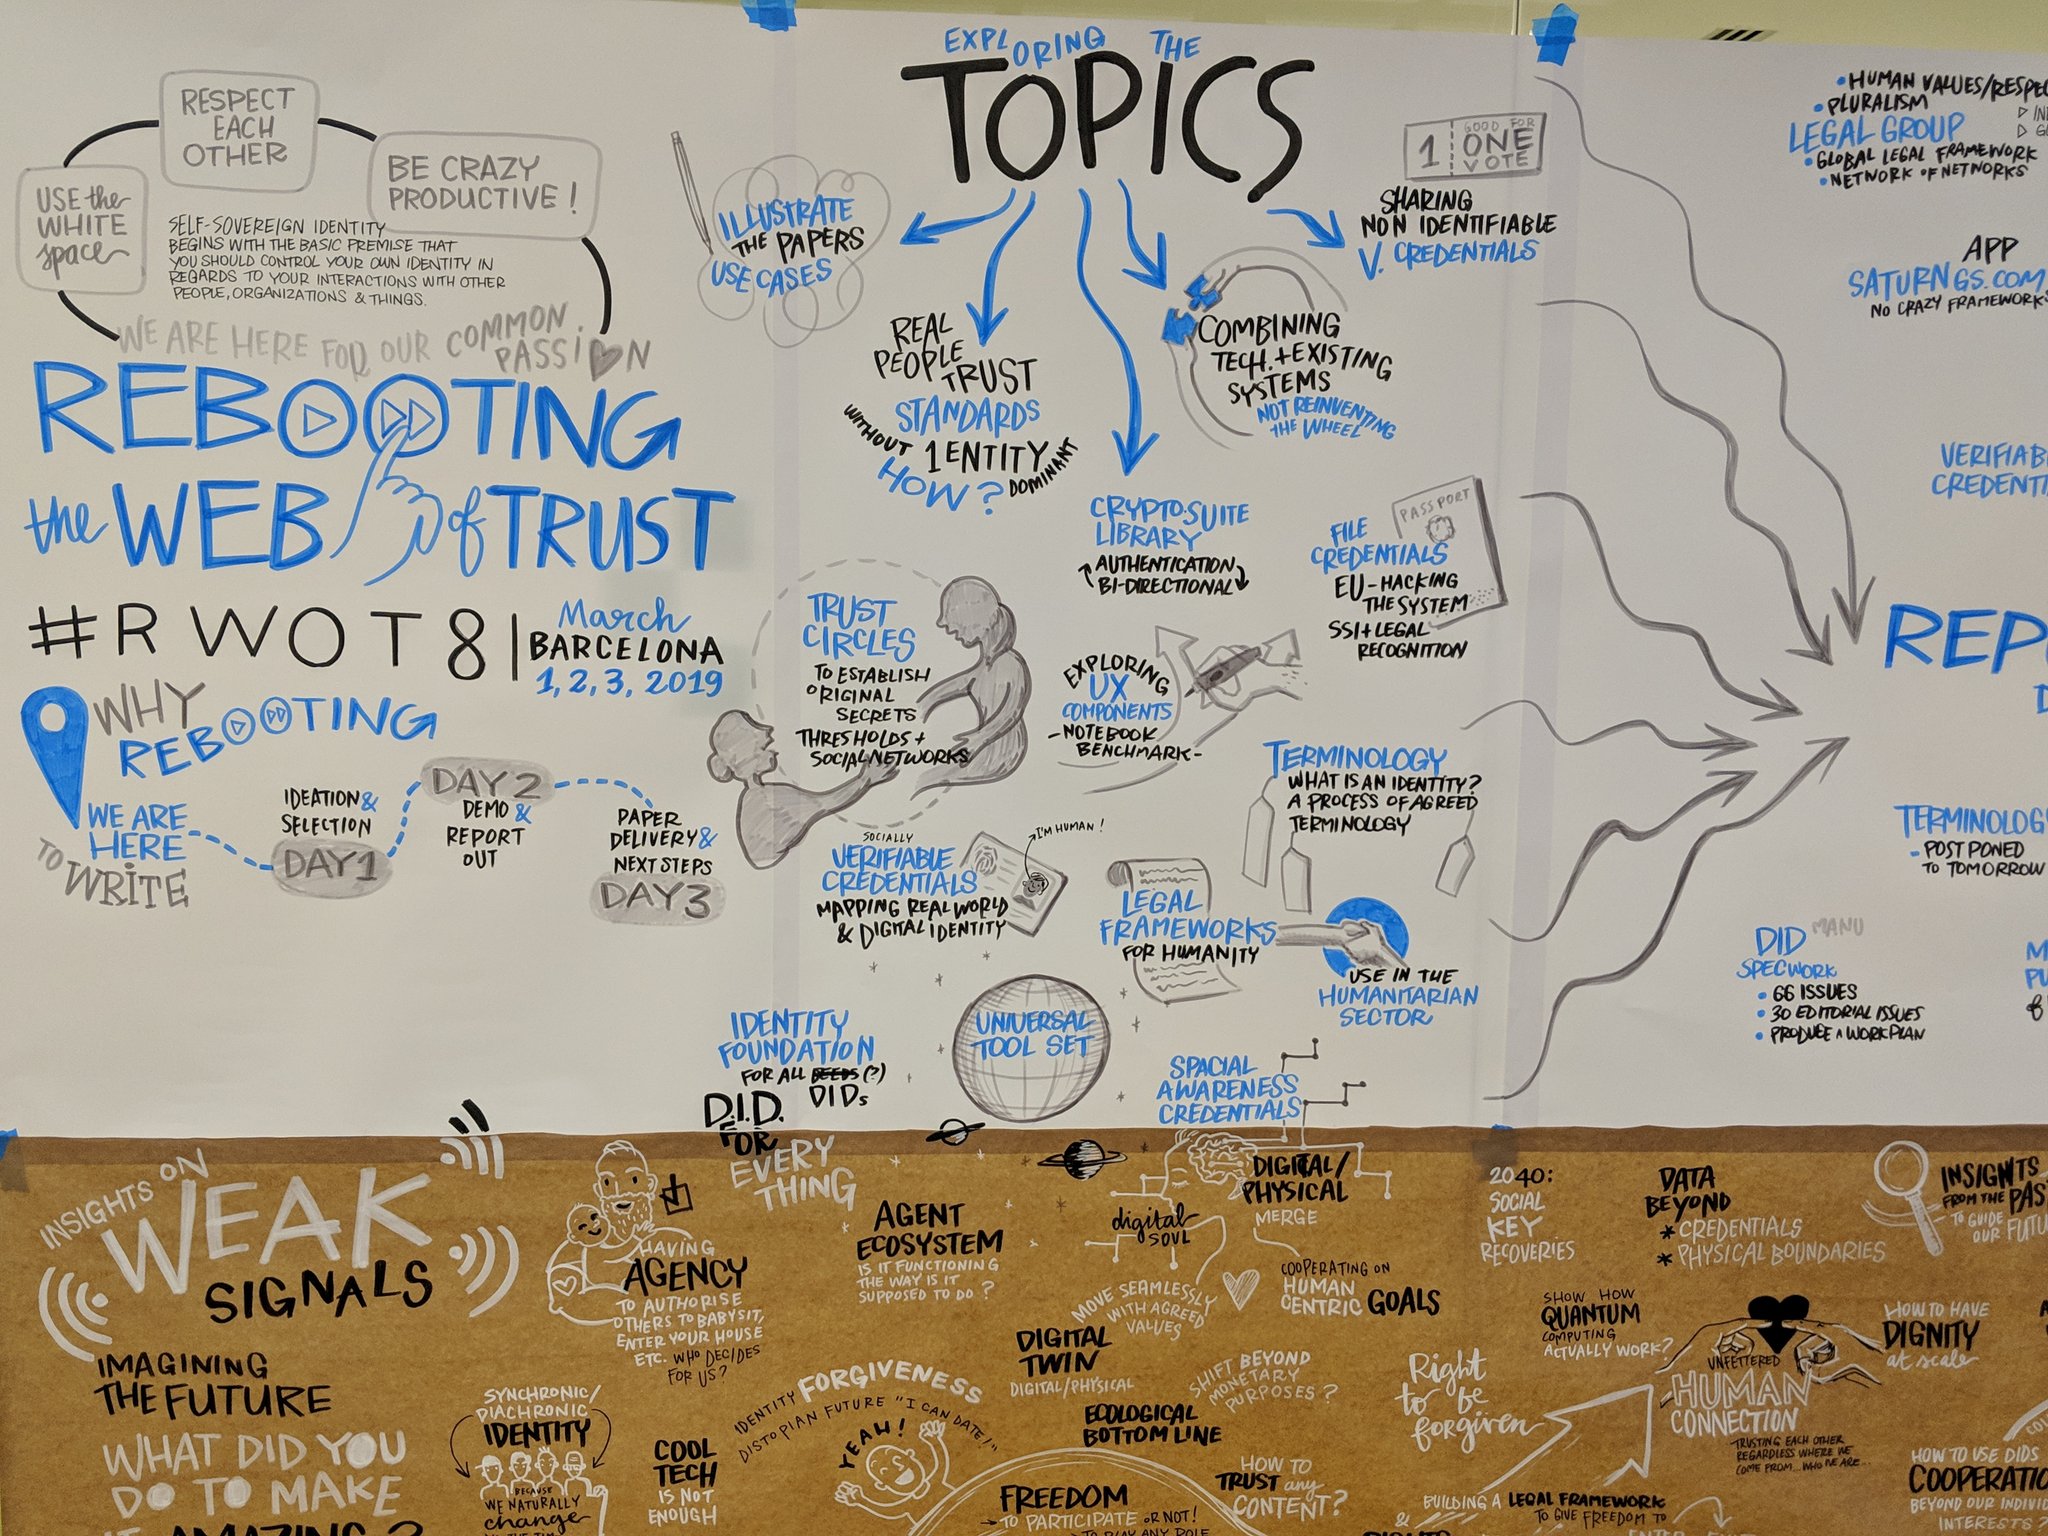 USE the
WHITE
space
RESPECT
EACH
OTHER
BE CRAZY
PRODUCTIVE!
SELF-SOVEREIGN IDENTITY
BEGINS WITH THE BASIC PREMISE THAT
YOU SHOULD CONTROL YOUR OWN IDENTITY IN
REGARDS TO YOUR INTERACTIONS WITH OTHER
PEOPLE, ORGANIZATIONS & THINGS.
WE ARE HERE FOR OUR COMMON
PASSION
REBOOTING
the WEB of TRUST
#RWOT8
March
BARCELONA
1, 2, 3, 2019
WHY
REBOOTING
WE ARE
HERE
TO WRITE
IDEATION &
SELECTION
DAY 1
DAY 2
DEMO &
REPORT
OUT
PAPER
DELIVERY &
NEXT STEPS
DAY 3
EXPLORING THE
TOPICS
ILLUSTRATE
THE PAPERS
USE CASES
REAL
PEOPLE
TRUST
STANDARDS
WITHOUT 1 ENTITY DOMINANT
HOW?
COMBINING
TECH. + EXISTING
SYSTEMS
NOT REINVENTING
THE WHEEL
1 GOOD FOR
ONE
VOTE
SHARING
NON IDENTIFIABLE
V. CREDENTIALS
CRYPTO-SUITE
LIBRARY
AUTHENTICATION
BI-DIRECTIONAL
PASSPORT
FILE
CREDENTIALS
EU-HACKING
THE SYSTEM
SSI + LEGAL
RECOGNITION
TRUST
CIRCLES
TO ESTABLISH
ORIGINAL
SECRETS
THRESHOLDS +
SOCIAL NETWORKS
EXPLORING
UX
COMPONENTS
-NOTEBOOK
BENCHMARK-
TERMINOLOGY
WHAT IS AN IDENTITY?
A PROCESS OF AGREED
TERMINOLOGY
SOCIALLY
VERIFIABLE
CREDENTIALS
MAPPING REAL WORLD
& DIGITAL IDENTITY
I'M HUMAN!
LEGAL
FRAMEWORKS
FOR HUMANITY
USE IN THE
HUMANITARIAN
SECTOR
IDENTITY
FOUNDATION
FOR ALL DEEDS (?)
DIDs
UNIVERSAL
TOOL SET
SPACIAL
AWARENESS
CREDENTIALS
HUMAN VALUES/RESPE
PLURALISM
LEGAL GROUP
GLOBAL LEGAL FRAMEWORK
NETWORK OF NETWORKS
APP
SATURNGS.COM
NO CRAZY FRAMEWORKS
VERIFIAB
CREDENTI
REP
TERMINOLOG
POSTPONED
TO TOMORROW
DID MANU
SPEC WORK
66 ISSUES
30 EDITORIAL ISSUES
PRODUCE A WORK PLAN
INSIGHTS ON
WEAK
SIGNALS
IMAGINING
THE FUTURE
WHAT DID YOU
DO TO MAKE
IT AMAZING?
D.I.D.
FOR
EVERY
THING
HAVING
AGENCY
TO AUTHORISE
OTHERS TO BABYSIT,
ENTER YOUR HOUSE
ETC. WHO DECIDES
FOR US?
SYNCHRONIC/
DIACHRONIC
IDENTITY
BECAUSE
WE NATURALLY
change
COOL
TECH
IS NOT
ENOUGH
AGENT
ECOSYSTEM
IS IT FUNCTIONING
THE WAY IS IT
SUPPOSED TO DO?
IDENTITY FORGIVENESS
DISTOPIAN FUTURE "I CAN DATE!"
YEAH!
digital
SOUL
DIGITAL/
PHYSICAL
MERGE
MOVE SEAMLESSLY
WITH AGREED
VALUES
COOPERATING ON
HUMAN
CENTRIC GOALS
DIGITAL
TWIN
DIGITAL/PHYSICAL
SHIFT BEYOND
MONETARY
PURPOSES?
ECOLOGICAL
BOTTOM LINE
FREEDOM
TO PARTICIPATE OR NOT!
TO PLAY ANY ROLE
HOW TO
TRUST any
CONTENT?
2040:
SOCIAL
KEY
RECOVERIES
DATA
BEYOND
* CREDENTIALS
* PHYSICAL BOUNDARIES
INSIGHTS
FROM THE PAST
TO GUIDE
OUR FUTU
SHOW HOW
QUANTUM
COMPUTING
ACTUALLY WORK?
Right
to be
forgiven
UNFETTERED
HUMAN
CONNECTION
TRUSTING EACH OTHER
REGARDLESS WHERE WE
COME FROM... WHO WE ARE...
HOW TO HAVE
DIGNITY
at scale
BUILDING A LEGAL FRAMEWORK
TO GIVE FREEDOM TO
HOW TO USE DIDS
COOPERATIO
BEYOND OUR INDIVID
INTERESTS?